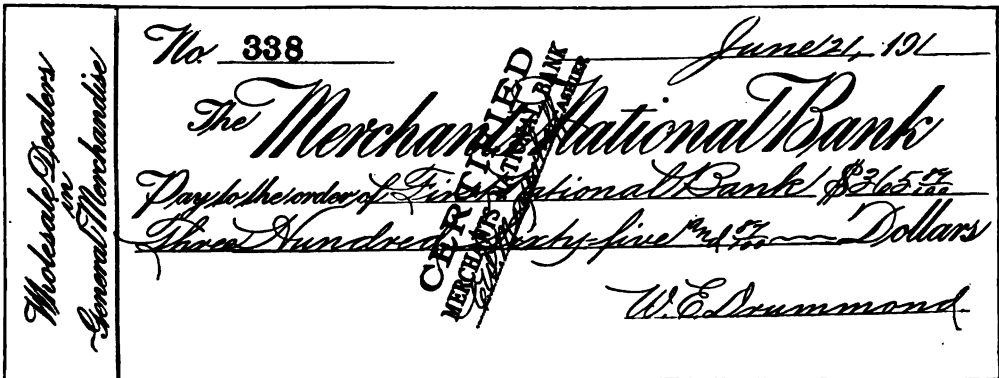 Wholesale Dealers
in
General Merchandise
No. 338
June 21, 191
The Merchants National Bank
Pay to the order of First National Bank $365
Three Hundred Sixty-five and Dollars
W. E. Drummond
CERTIFIED
MERCHANTS NATIONAL BANK
CASHIER